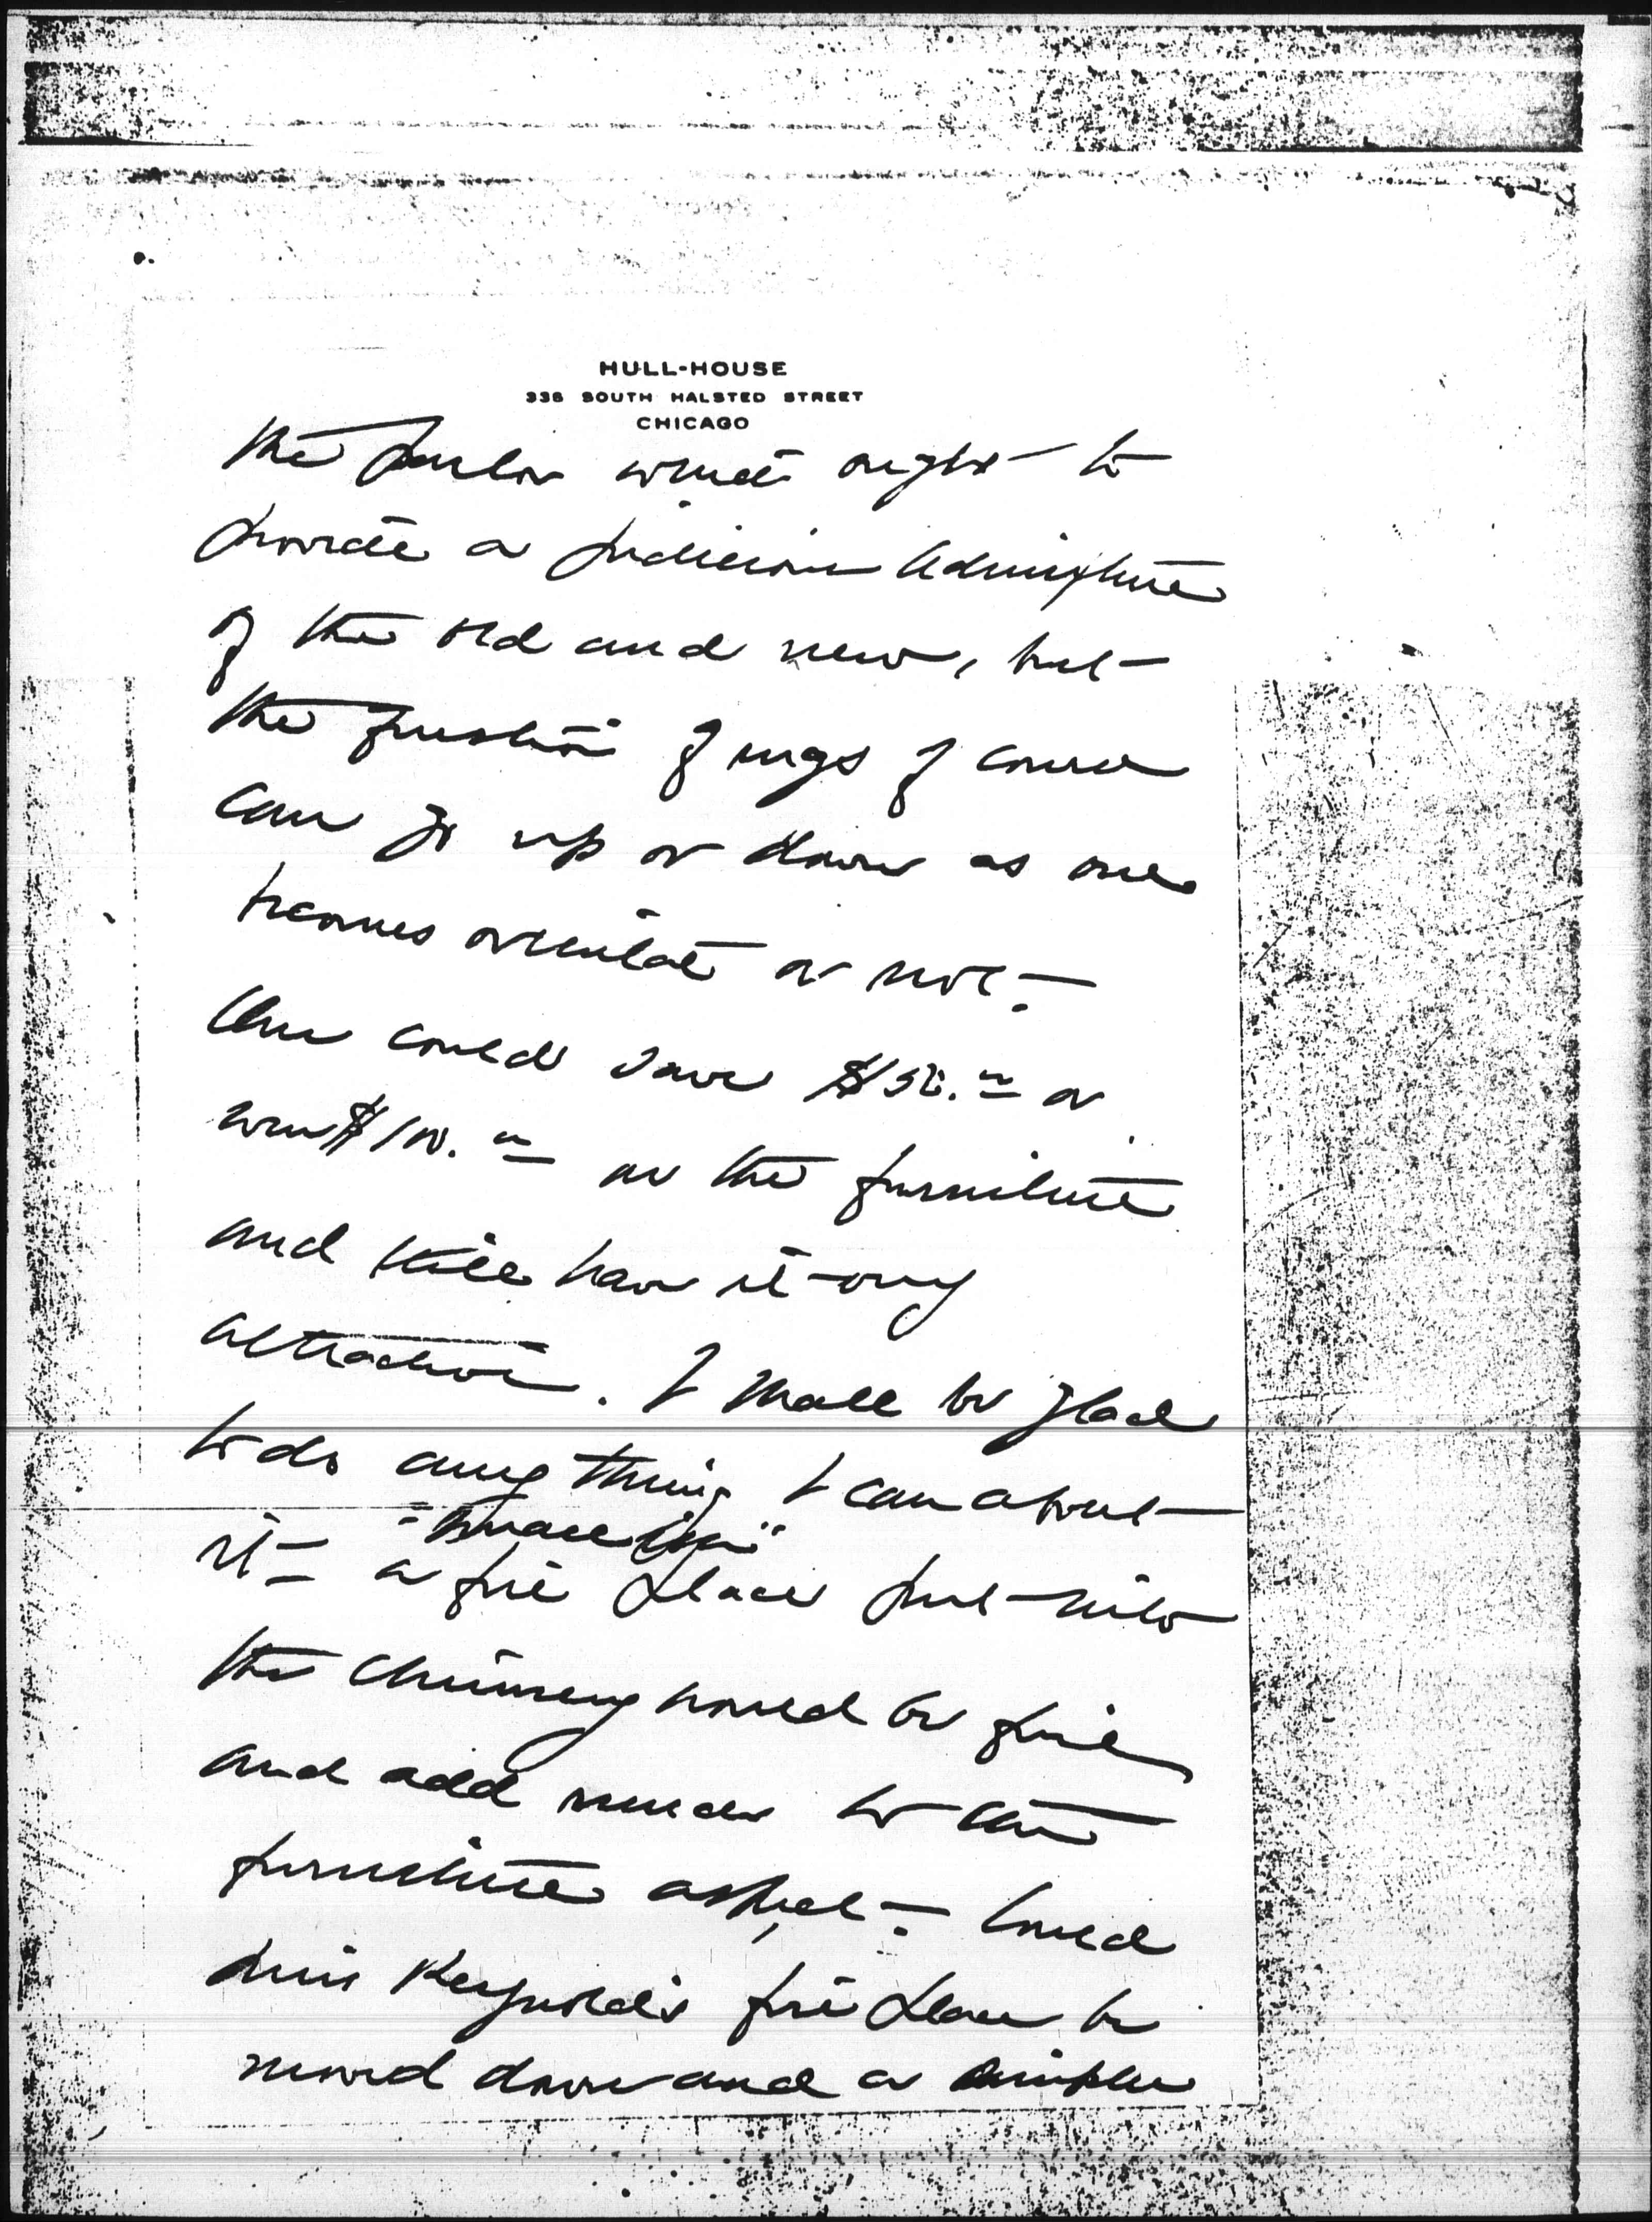 HULL-HOUSE
335 SOUTH HALSTED STREET
CHICAGO
the parlor which ought to
provide a judicious admixture
of the old and new, but
the question of rugs of course
can go up or down as one
becomes oriental or not.
One could save $50.00 or
even $100.00 on the furniture
and still have it very
attractive. I shall be glad
to do any thing I can about
it.
a fire place put into
the chimney would be fine
and add much to the
furniture aspect. Could
Miss Reynolds fire place be
moved down and a simpler